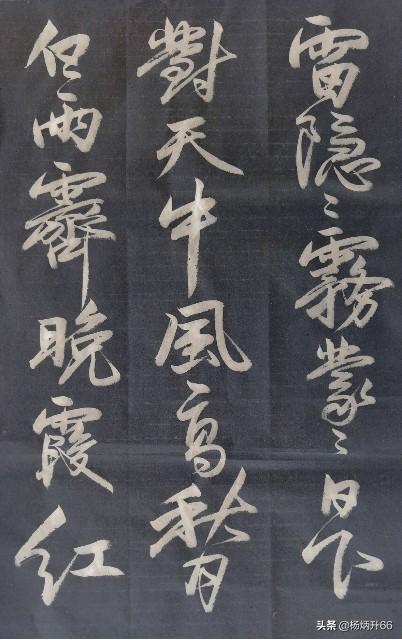 雷隐〻霧蒙〻日下
對天中風高秋月
白雨霽晚霞红
头条 @杨炳升66